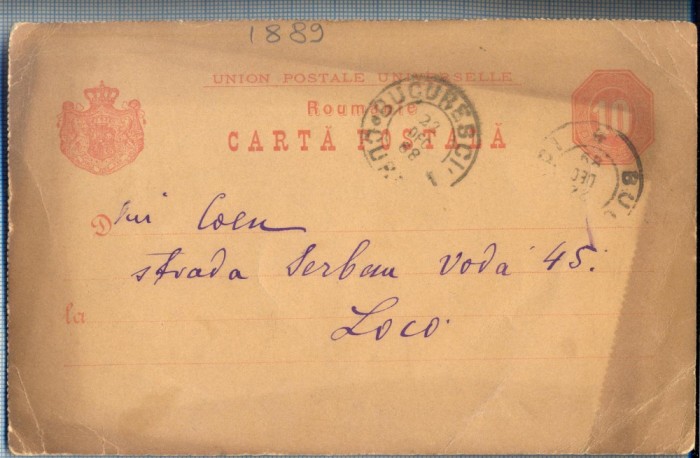 1889
UNION POSTALE UNIVERSELLE
Roumanie
CARTĂ POSTALĂ
10
BUCURESCI
22
DEC
88
D lui Coen
strada Serban Vodă 45.
la
Loco.
BU
DEC